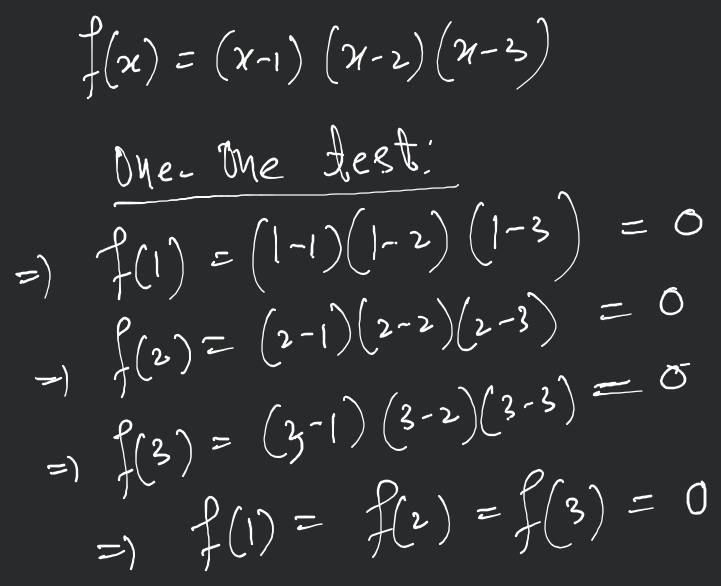 f(x) = (x-1) (x-2) (x-3)
One-One test:
=> f(1) = (1-1)(1-2)(1-3) = 0
=> f(2) = (2-1)(2-2)(2-3) = 0
=> f(3) = (3-1)(3-2)(3-3) = 0
=> f(1) = f(2) = f(3) = 0